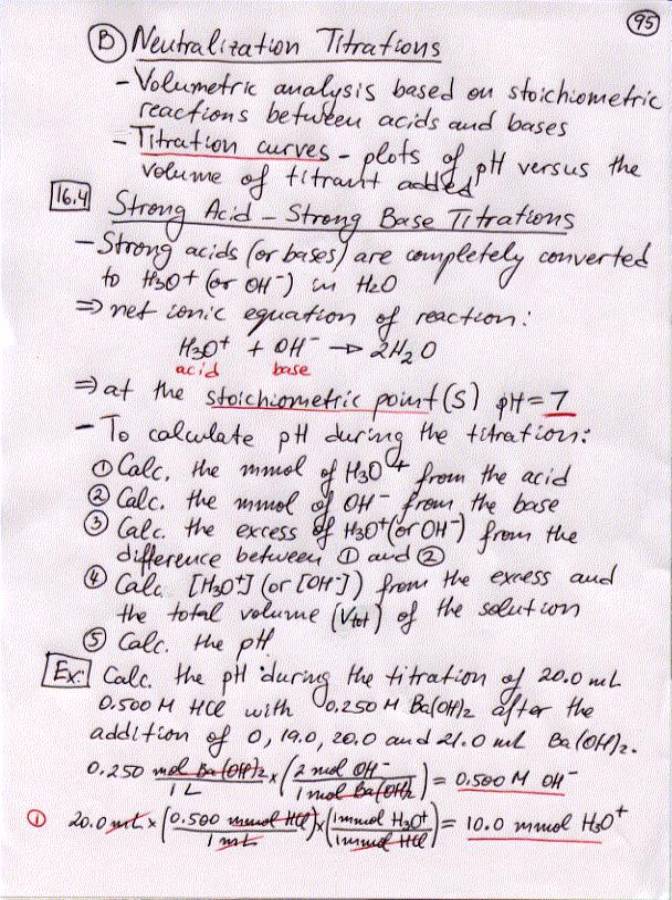 95
B Neutralization Titrations
- Volumetric analysis based on stoichiometric
reactions between acids and bases
- Titration curves - plots of pH versus the
volume of titrant added
16.4 Strong Acid - Strong Base Titrations
- Strong acids (or bases) are completely converted
to H3O+ (or OH-) in H2O
⇒ net ionic equation of reaction:
H3O+ + OH- → 2H2O
acid base
⇒ at the stoichiometric point (S) pH = 7
- To calculate pH during the titration:
① Calc. the mmol of H3O+ from the acid
② Calc. the mmol of OH- from the base
③ Calc. the excess of H3O+ (or OH-) from the
difference between ① and ②
④ Calc. [H3O+] (or [OH-]) from the excess and
the total volume (Vtot) of the solution
⑤ Calc. the pH
Ex: Calc. the pH during the titration of 20.0 mL
0.500 M HCl with 0.250 M Ba(OH)2 after the
addition of 0, 19.0, 20.0 and 21.0 mL Ba(OH)2.
0.250 mol Ba(OH)2 / 1 L × (2 mol OH- / 1 mol Ba(OH)2) = 0.500 M OH-
① 20.0 mL × (0.500 mmol HCl / 1 mL) × (1 mmol H3O+ / 1 mmol HCl) = 10.0 mmol H3O+